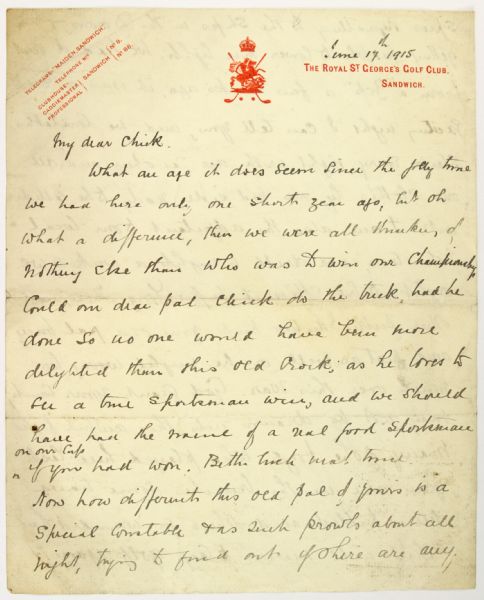 TELEGRAMS: "MAIDEN, SANDWICH."
TELEPHONE NOS
CLUBHOUSE
CADDIEMASTER
PROFESSIONAL
SANDWICH
No 9.
No 98.
June 17th, 1915
THE ROYAL ST GEORGE'S GOLF CLUB,
SANDWICH.
My dear Chick.
What an age it does seem since the jolly time
we had here only one short year ago, but oh
what a difference, then we were all thinking of
nothing else than who was to win our Championship
Could our dear pal Chick do the trick, had he
done so no one would have been more
delighted than this old Crock; as he loves to
see a true Sportsman win, and we should
have had the name of a real good Sportsman
on our Cup
if you had won. Better luck next time.
Now how different this old pal of yours is a
Special Constable & as such prowls about all
night, trying to find out if there are any,